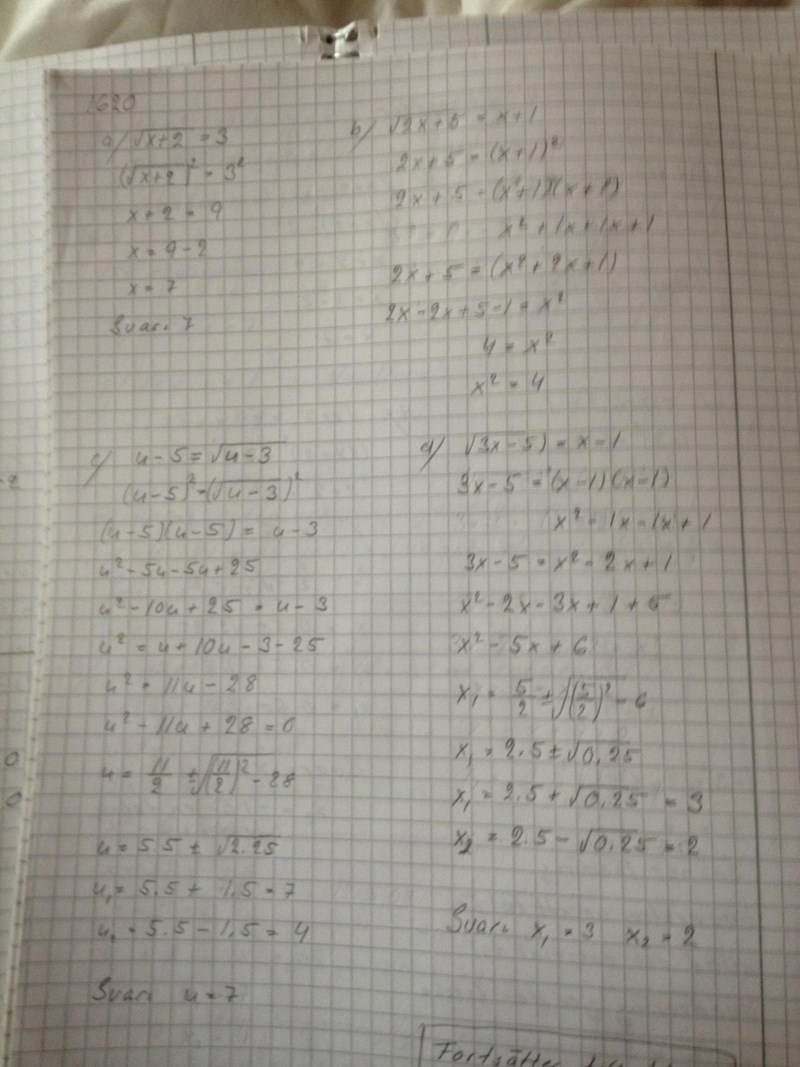 1620
a) √x+2 = 3
(√x+2)² = 3²
x+2 = 9
x = 9-2
x = 7
Svar: 7
b) √2x+5 = x+1
2x+5 = (x+1)²
2x+5 = (x+1)(x+1)
x²+1x+1x+1
2x+5 = (x²+2x+1)
2x-2x+5-1 = x²
4 = x²
x² = 4
c) u-5 = √u-3
(u-5)² = (√u-3)²
(u-5)(u-5) = u-3
u²-5u-5u+25
u²-10u+25 = u-3
u² = u+10u-3-25
u² = 11u-28
u²-11u+28 = 0
u = 11/2 ± √(11/2)²-28
u = 5.5 ± √2.25
u₁ = 5.5 + 1.5 = 7
u₂ = 5.5 - 1.5 = 4
Svar: u = 7
d) √3x-5) = x-1
3x-5 = (x-1)(x-1)
x²-1x-1x+1
3x-5 = x²-2x+1
x²-2x-3x+1+5
x²-5x+6
x₁ = 5/2 ± √(5/2)²-6
x₁ = 2.5 ± √0.25
x₁ = 2.5 + √0.25 = 3
x₂ = 2.5 - √0.25 = 2
Svar: x₁ = 3 x₂ = 2
Fortsätter